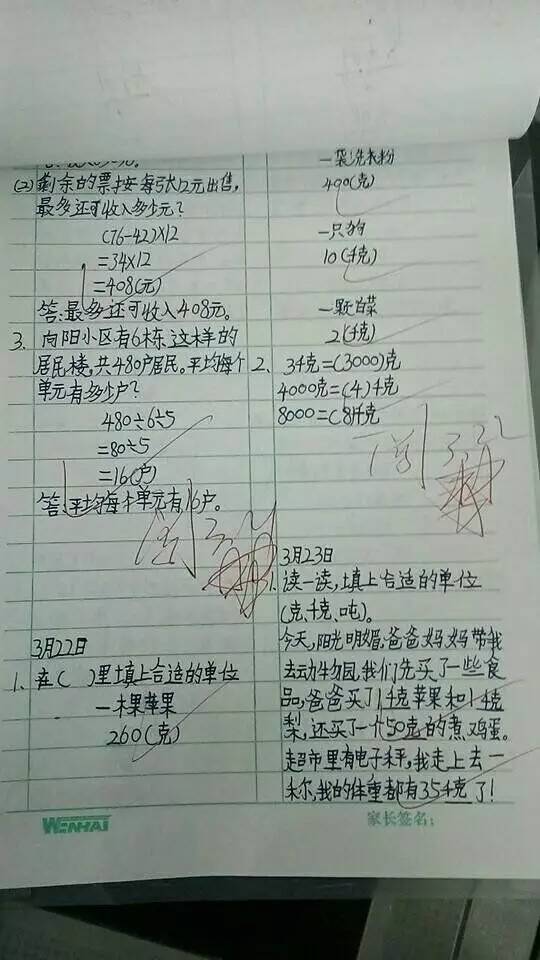 (2)剩余的票按每张12元出售,
最多还可收入多少元?
(76-42)×12
=34×12
=408(元)
答:最多还可收入408元。
3. 向阳小区有6栋这样的
居民楼,共480户居民。平均每个
单元有多少户?
480÷6÷5
=80÷5
=16(户)
答:平均每个单元有16户。
3月22日
1. 在( )里填上合适的单位
一棵苹果
260(克)
一袋洗衣粉
490(克)
一只狗
10(千克)
一颗白菜
2(千克)
2. 3千克=(3000)克
4000克=(4)千克
8000=(8)千克
3.22
3月23日
1. 读一读,填上合适的单位
(克、千克、吨)。
今天,阳光明媚,爸爸妈妈带我
去动物园,我们先买了一些食
品,爸爸买了1千克苹果和1千克
梨,还买了一个50克的煮鸡蛋。
超市里有电子秤,我走上去一
称,我的体重都有35千克了!
WENHAI
家长签名: